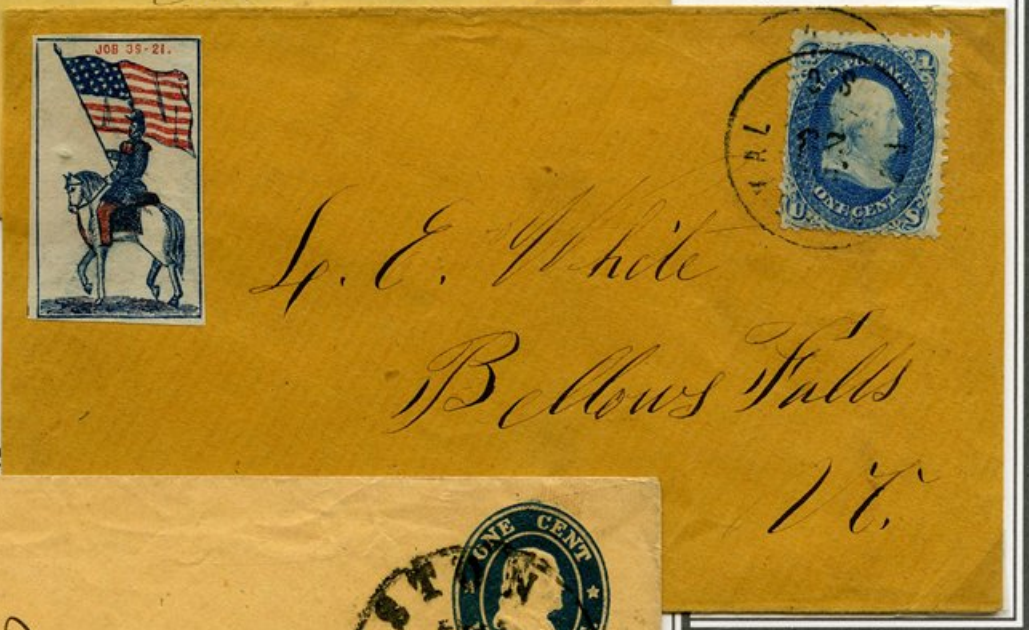 JOB 39-21.
U.S. POSTAGE
ONE CENT
L. E. White
Bellows Falls
Vt.
ONE CENT